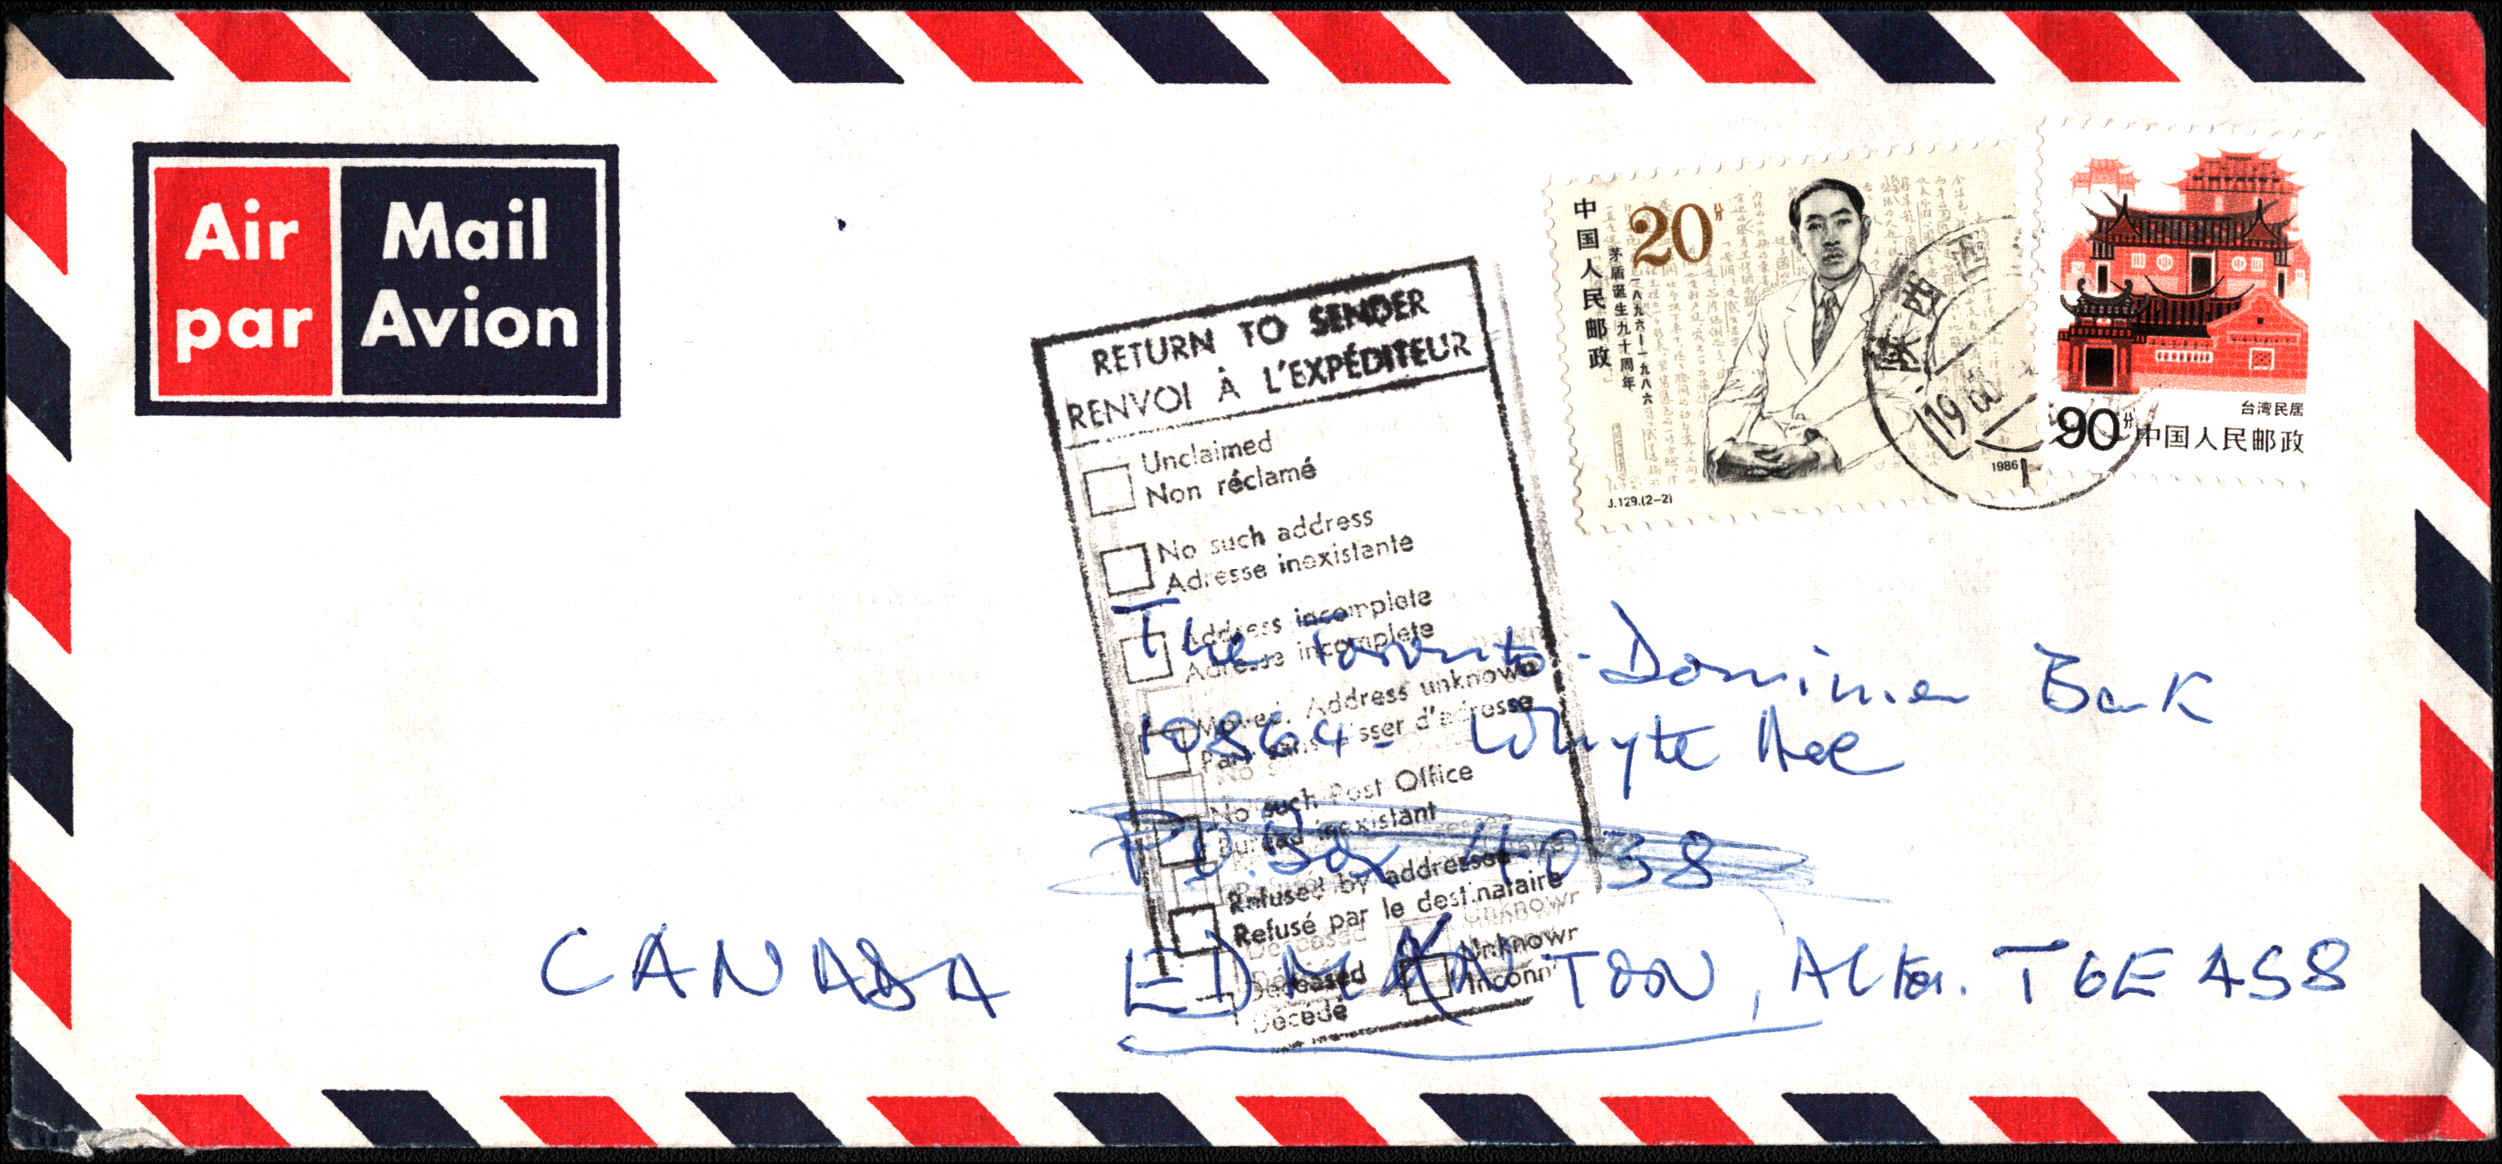 Air Mail
par Avion
中国人民邮政
20分
茅盾诞生九十周年
一八九六—一九八六
1986
J.129.(2-2)
台湾民居
90分
中国人民邮政
陕西
西
19
RETURN TO SENDER
RENVOI À L'EXPÉDITEUR
Unclaimed
Non réclamé
No such address
Adresse inexistante
Address incomplete
Adresse incomplete
Moved. Address unknown
Part sans laisser d'adresse
No such Post Office
Bureau inexistant
Refused by addressee
Refusé par le destinataire
Deceased
Décédé
Unknown
Inconn
The Toronto-Dominion Bank
10864- Whyte Ave
P.O. Box 4038
CANADA EDMONTON, Alta. T6E 4S8